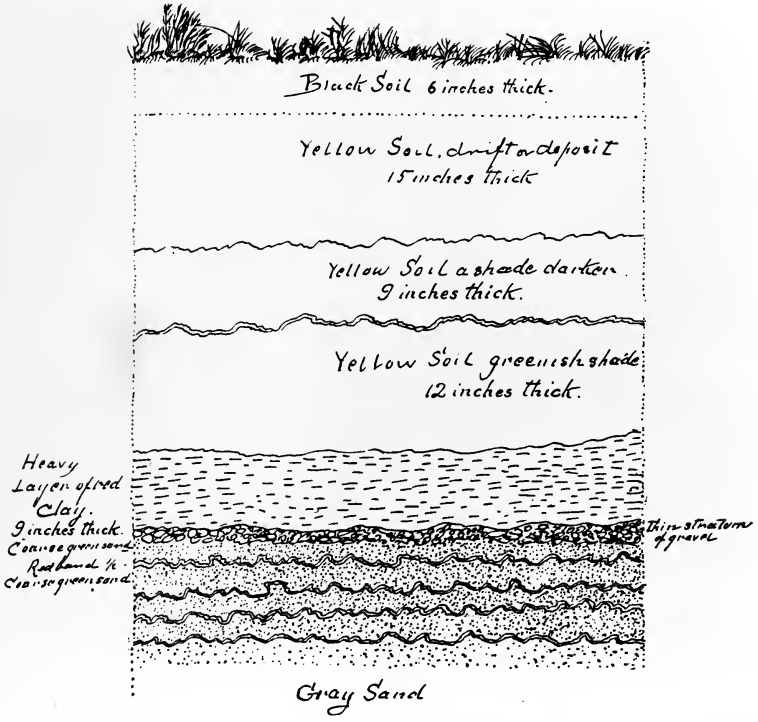 Black Soil 6 inches thick.
Yellow Soil, drift or deposit
15 inches thick
Yellow Soil a shade darker.
9 inches thick.
Yellow Soil greenish shade
12 inches thick.
Heavy
Layer of red
Clay.
9 inches thick.
Coarse green sand
Red band
Coarse green sand
thin stratum
of gravel
Gray Sand